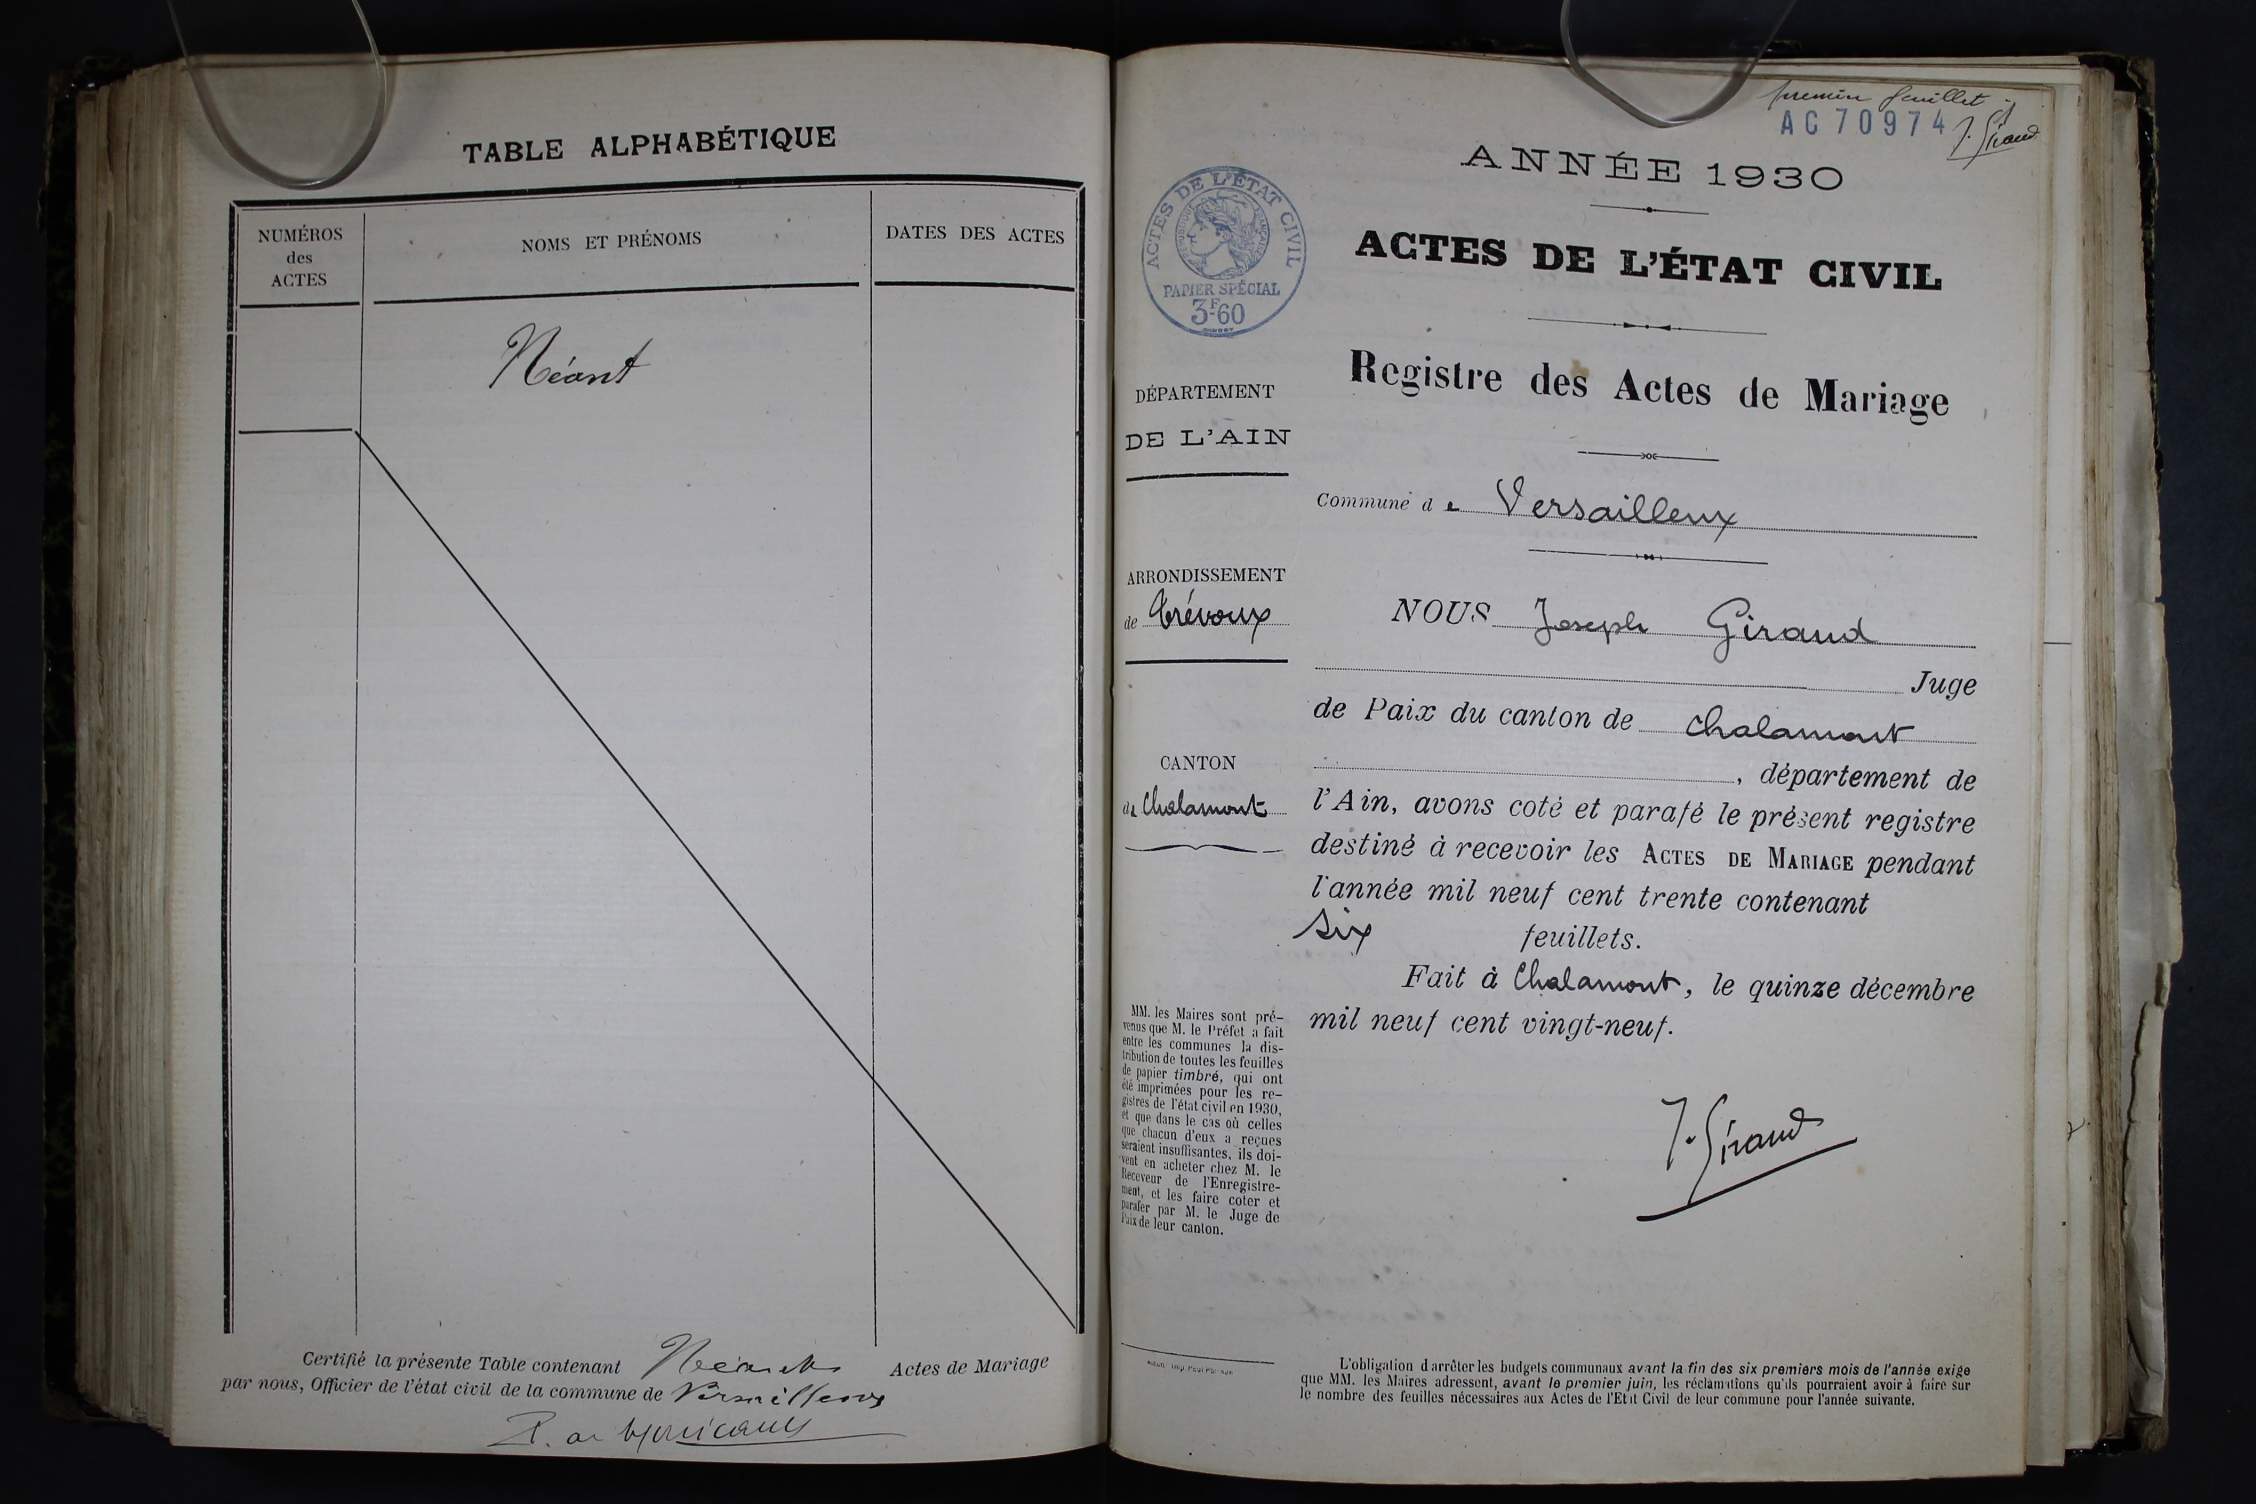 TABLE ALPHABÉTIQUE
NUMÉROS
des
ACTES
NOMS ET PRÉNOMS
DATES DES ACTES
Néant
Certifié la présente Table contenant Néant Actes de Mariage
par nous, Officier de l'état civil de la commune de Versailleux
premier feuillet
J. Giraud
AC70974
ANNÉE 1930
ACTES DE L'ÉTAT CIVIL
RÉPUBLIQUE FRANÇAISE
PAPIER SPÉCIAL
3F60
ACTES DE L'ÉTAT CIVIL
Registre des Actes de Mariage
DÉPARTEMENT
DE L'AIN
Commune de Versailleux
ARRONDISSEMENT
de Trévoux
CANTON
de Chalamont
NOUS Joseph Giraud
Juge
de Paix du canton de Chalamont
, département de
l'Ain, avons coté et parafé le présent registre
destiné à recevoir les ACTES DE MARIAGE pendant
l'année mil neuf cent trente contenant
six feuillets.
Fait à Chalamont, le quinze décembre
mil neuf cent vingt-neuf.
J. Giraud
MM. les Maires sont pré-
venus que M. le Préfet a fait
entre les communes la dis-
tribution de toutes les feuilles
de papier timbré, qui ont
été imprimées pour les re-
gistres de l'état civil en 1930,
et que dans le cas où celles
que chacun d'eux a reçues
seraient insuffisantes, ils doi-
vent en acheter chez M. le
Receveur de l'Enregistre-
ment, et les faire coter et
parafer par M. le Juge de
Paix de leur canton.
L'obligation d'arrêter les budgets communaux avant la fin des six premiers mois de l'année exige
que MM. les Maires adressent, avant le premier juin, les réclamations qu'ils pourraient avoir à faire sur
le nombre des feuilles nécessaires aux Actes de l'Etat Civil de leur commune pour l'année suivante.